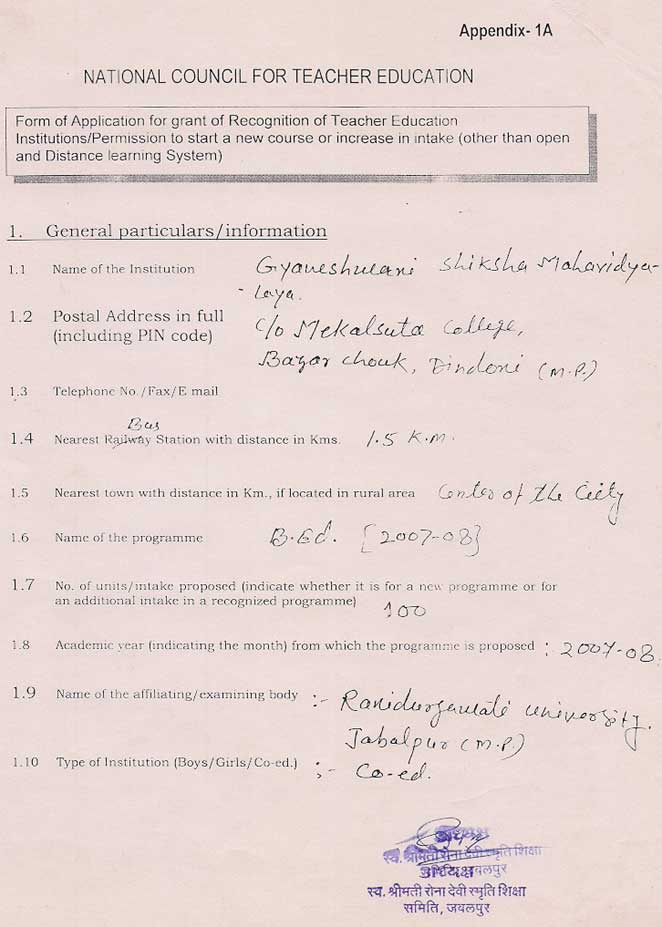 Appendix- 1A
NATIONAL COUNCIL FOR TEACHER EDUCATION
Form of Application for grant of Recognition of Teacher Education
Institutions/Permission to start a new course or increase in intake (other than open
and Distance learning System)
1. General particulars/information
1.1 Name of the Institution Gyaneshwani Shiksha Mahavidya-
- laya.
1.2 Postal Address in full
(including PIN code) C/o Mekalsuta College,
Bazar Chouk, Dindori (M.P.)
1.3 Telephone No./Fax/E mail
Bus
1.4 Nearest Railway Station with distance in Kms. 1.5 K.M.
1.5 Nearest town with distance in Km., if located in rural area Center of the City
1.6 Name of the programme B.Ed. [2007-08]
1.7 No. of units/intake proposed (indicate whether it is for a new programme or for
an additional intake in a recognized programme) 100
1.8 Academic year (indicating the month) from which the programme is proposed : 2007-08.
1.9 Name of the affiliating/examining body :- Ranidurgawati University.
Jabalpur (M.P.)
1.10 Type of Institution (Boys/Girls/Co-ed.) :- Co-ed.
अध्यक्ष
स्व. श्रीमती रोना देवी स्मृति शिक्षा
जबलपुर
स्व. श्रीमती रोना देवी स्मृति शिक्षा
समिति, जबलपुर